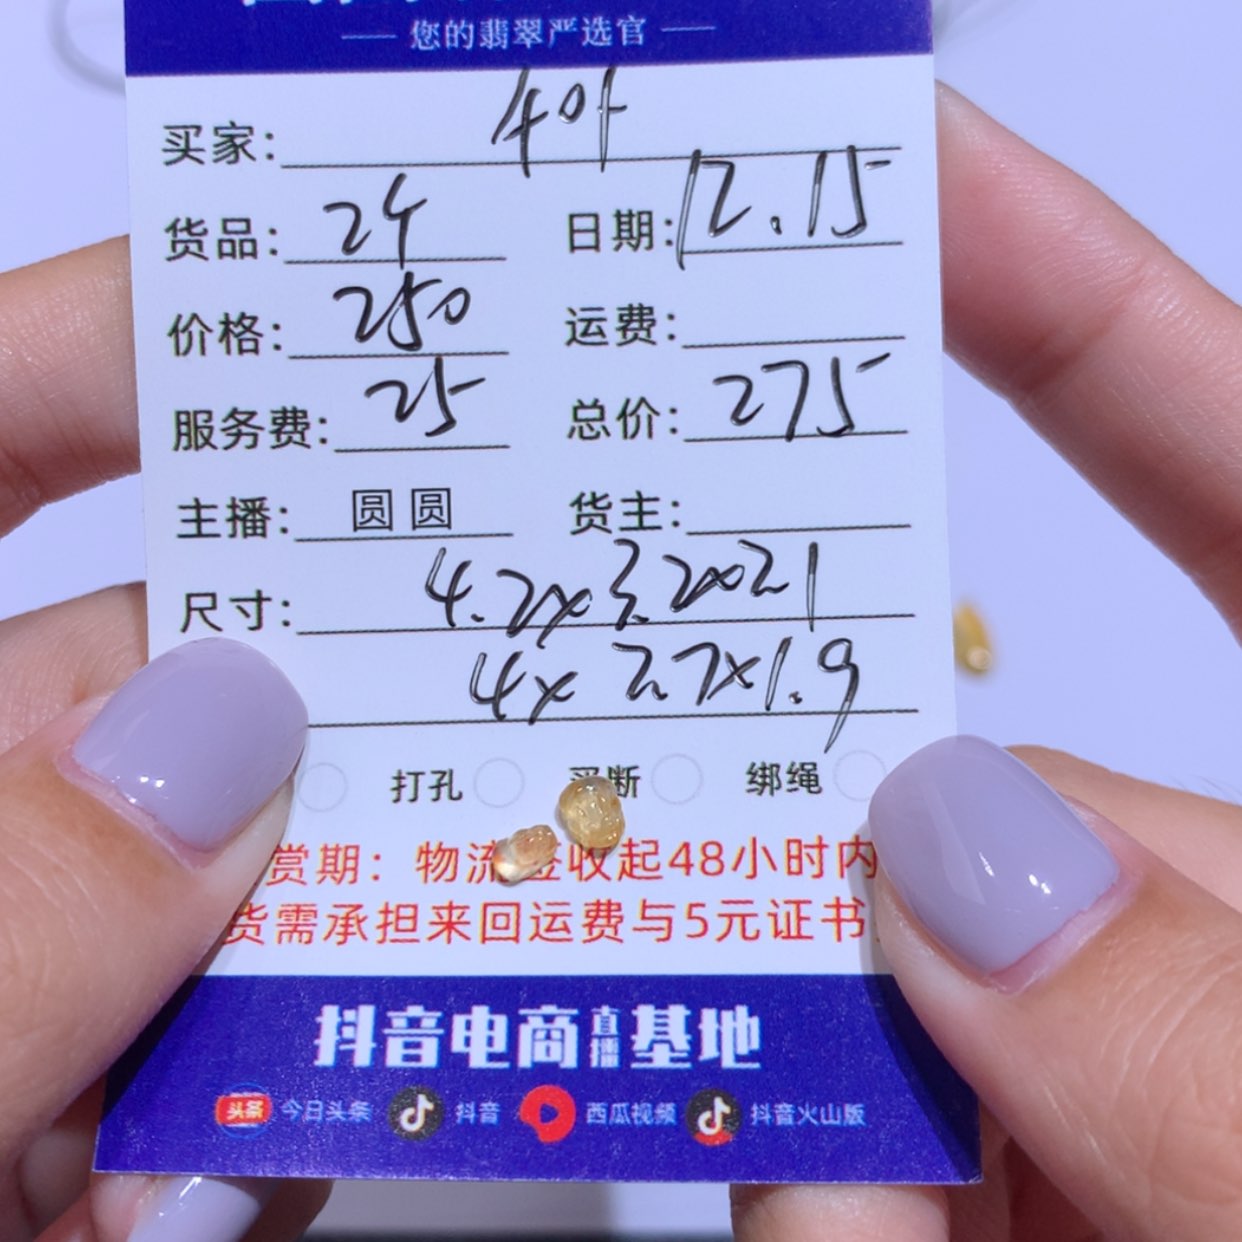 您的翡翠严选官
买家: 404
货品: 24 日期: 12.15
价格: 250 运费:
服务费: 25 总价: 275
主播: 圆圆 货主:
尺寸: 4.2x3.2x2.1
4x2.7x1.9
打孔 买断 绑绳
赏期: 物流签收起48小时内
货需承担来回运费与5元证书
抖音电商直播基地
头条 今日头条 抖音 西瓜视频 抖音火山版